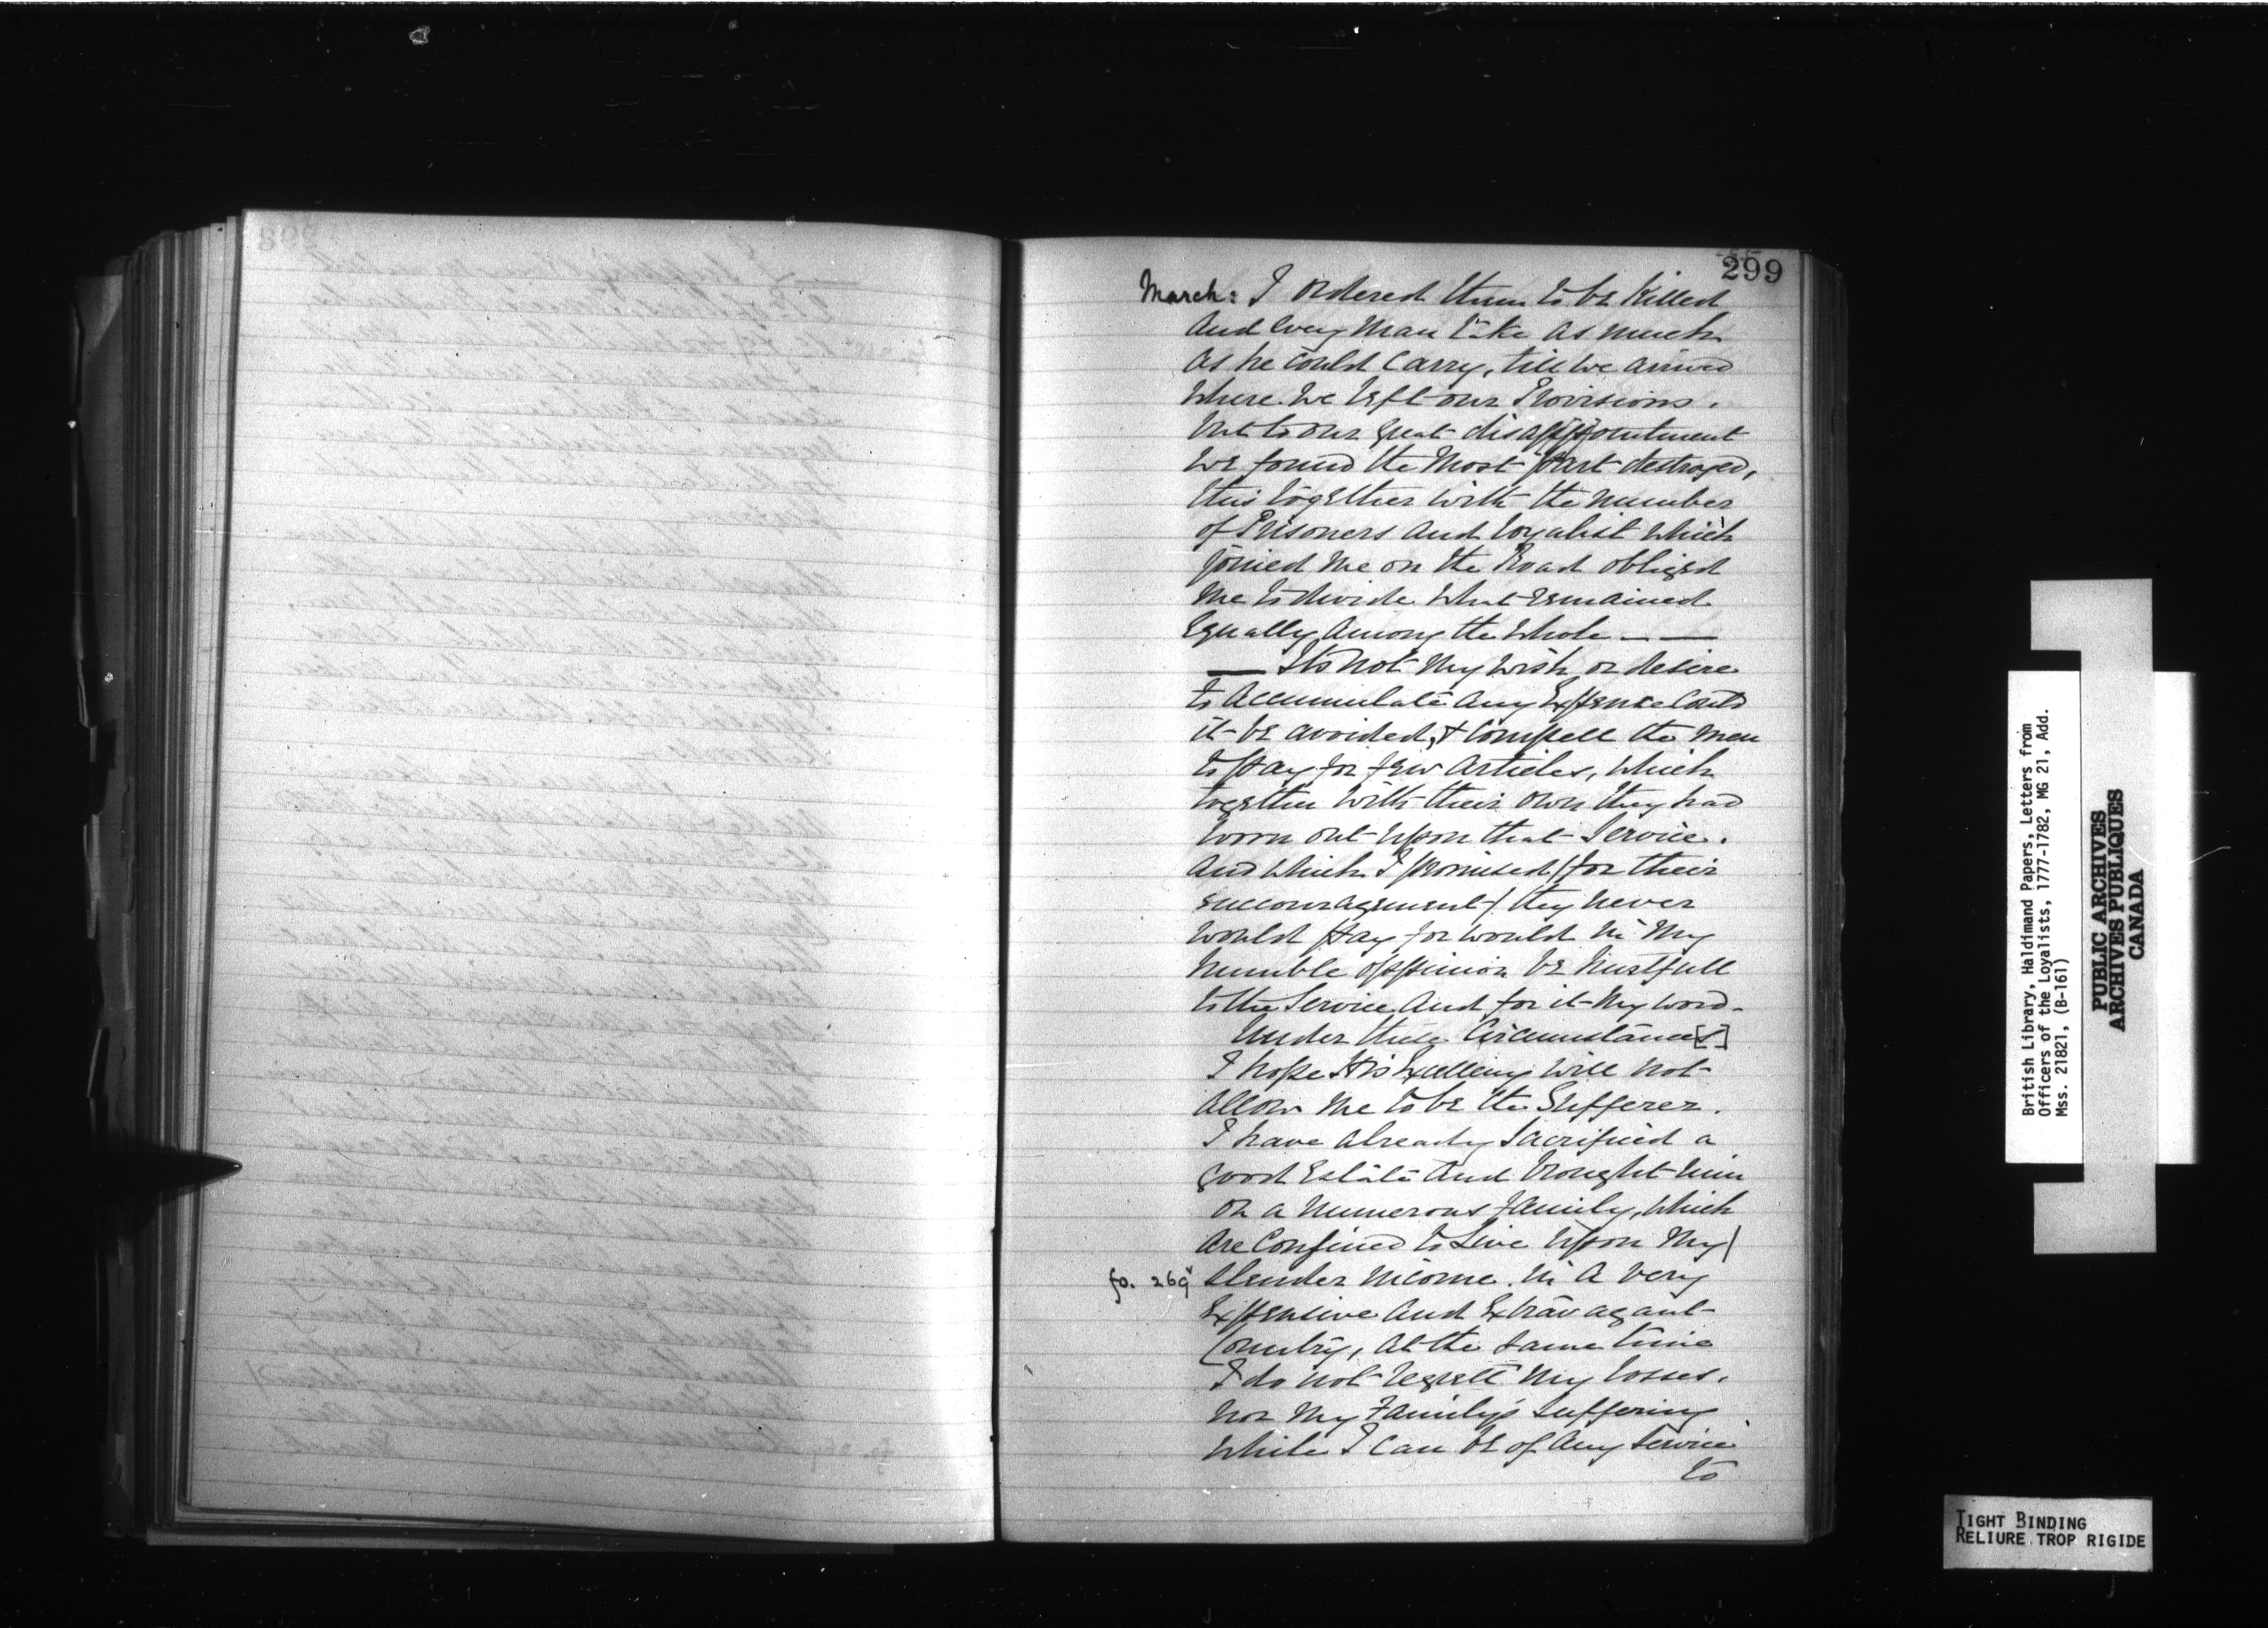 299
March: I ordered them to be Killed
And every Man take as much
As he could Carry, till we arrived
where we left our Provisions.
but to our great disappointment
we found the Most part destroyed,
this together with the number
of Prisoners and Loyalist which
joined me on the Road obliged
me to divide what remained
Equally Among the whole — —
— Its not My wish or desire
to Accumulate Any Expence Could
it be avoided, & Compell the Men
to pay for few Articles, which
together with their own they had
worn out upon that Service.
And which I promised (for their
encouragement) they never
would pay for would in My
humble oppinion be hurtfull
to the Service And for it My word.
Under these Circumstance[s]
I hope His Excellency will not
Allow me to be the Sufferer.
I have already Sacrificed a
good Estate And brought ruin
on a Numerous family, which
Are Confined to Live upon My/
fo. 269v slender income in A very
Expensive And Extravagant
Country, At the same time
I do not regrett My losses,
nor My Family's suffering
while I can be of Any Service
to
British Library, Haldimand Papers, Letters from
Officers of the Loyalists, 1777-1782, MG 21, Add.
Mss. 21821, (B-161)
PUBLIC ARCHIVES
ARCHIVES PUBLIQUES
CANADA
TIGHT BINDING
RELIURE TROP RIGIDE